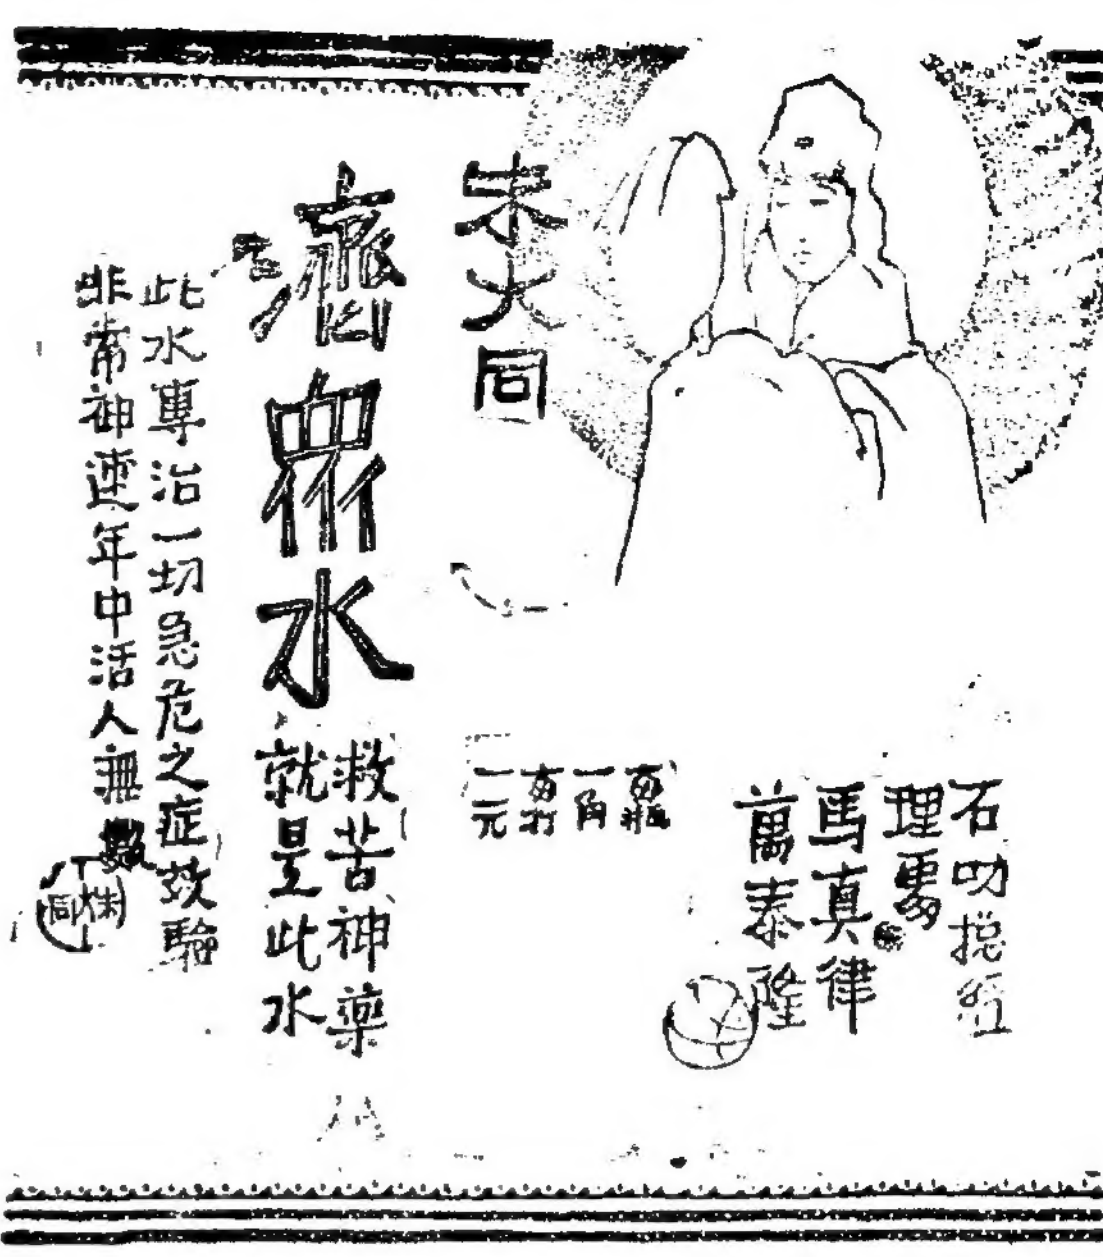 石叻捴經
理處
馬真律
萬泰隆
每瓶
一角
每打
一元
朱大同
濟眾水
救苦神藥
就是此水
此水專治一切急危之症效驗
非常神速年中活人無數